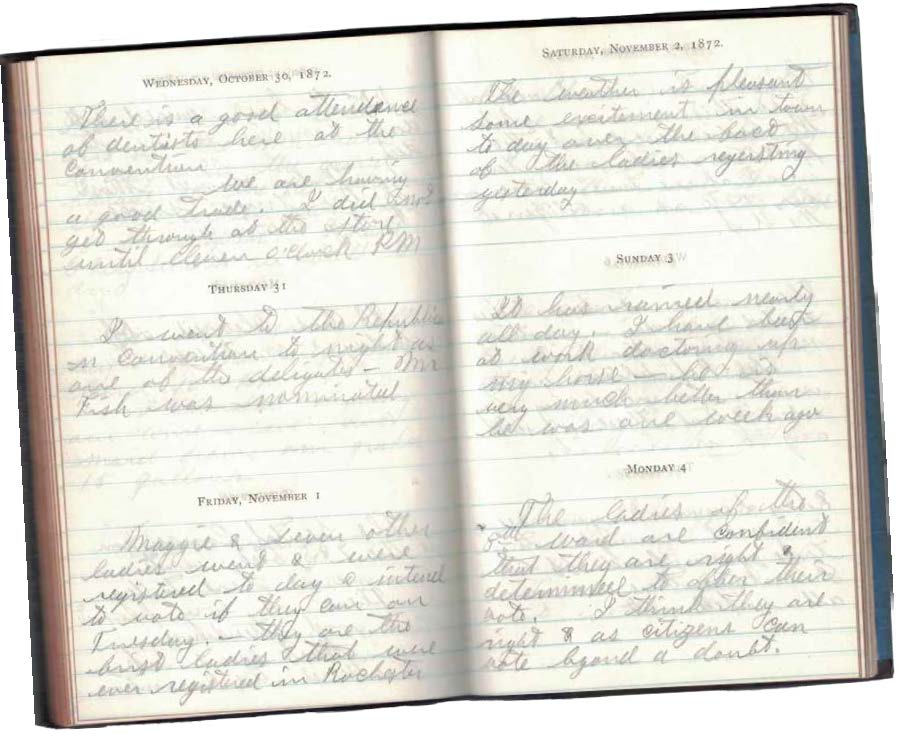 WEDNESDAY, OCTOBER 30, 1872.
There is a good attendance
of dentists here at the
Convention
We are having
a good trade I did not
get through at the store
until eleven o'clock P.M
THURSDAY 31
I went to the Republic
n Convention to night as
one of the delegates – Mr
Fish was nominated
FRIDAY, NOVEMBER 1
Maggie & seven other
ladies went & were
registered to day & intend
to vote if they can on
Tuesday. – they are the
first ladies that were
ever registered in Rochester
SATURDAY, NOVEMBER 2, 1872.
The weather is pleasant
some excitement in town
to day over the fact
of the ladies regersting
yesterday
SUNDAY 3
It has rained nearly
all day. I have been
at work doctoring up
my horse – he is
very much better than
he was one week ago
MONDAY 4
The ladies of the
8th ward are confident
that they are right &
determined to offer their
vote. I think they are
right & as citizens can
vote beyond a doubt.